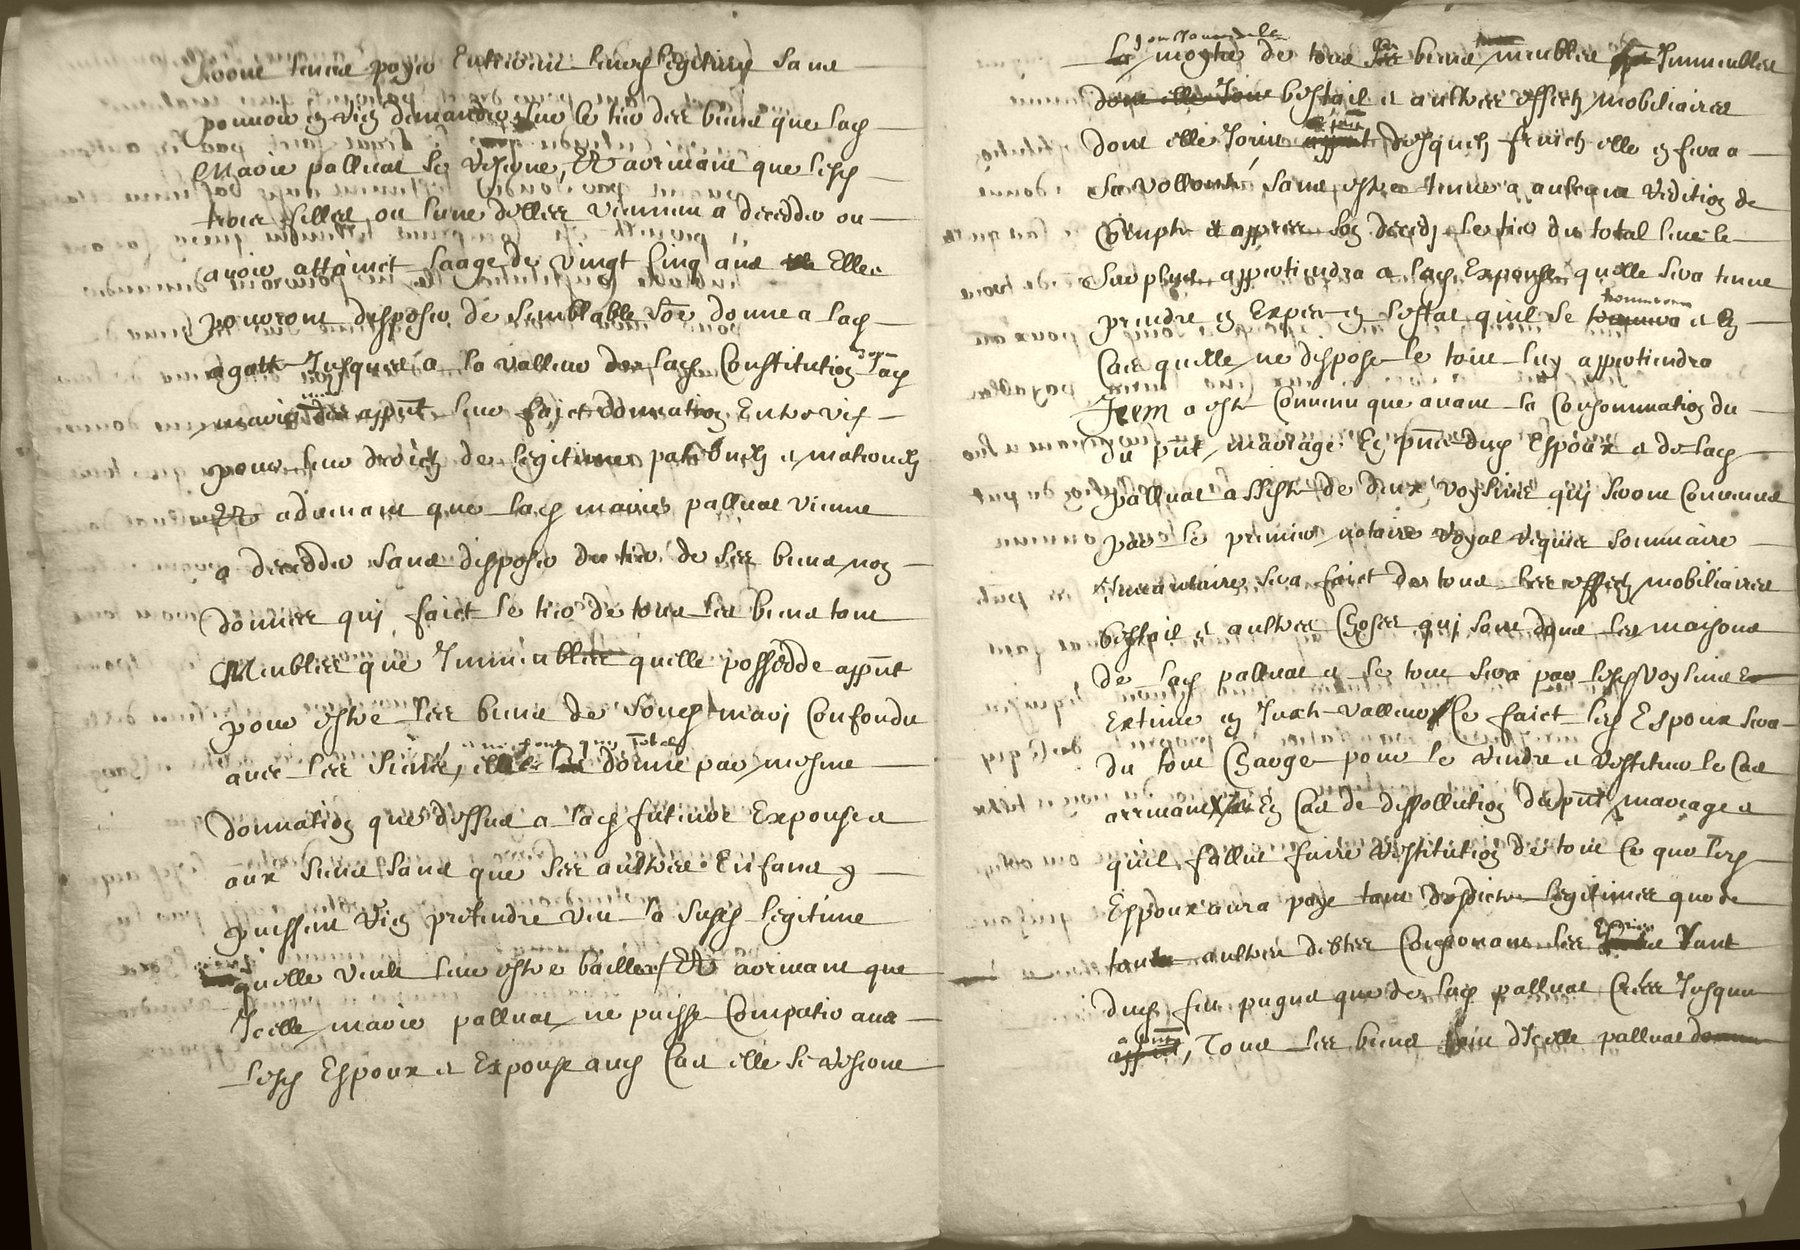 seront tenus payer entierem leursd legitimes sans
pouvoir en rien demander sur le tier des biens que lad
Marie palluat se reserve, Et advenant que lesd
trois filles ou lune delles viennent a decedder ou
avoir attainct laage de vingt cinq ans Elles
pouront disposer de semblable so͞e donne a lad
agatte Jusques a la valleur lad Constitution
mariee des app͞nt leur faict donnation Entrevifs
pour leur droicts de legitime paternels et maternels
Et advenant que lad marie palluat vienne
a decedder sans disposer du tier de ses biens non
donnes qui faict le tier de tous les biens tant
Meubles que Immeubles quelle possedde app͞nt
pour estre les biens de sond mary Confondu
avec les siens, elle donne par mesme
donnation que dessus a lad future Expouse et
aux siens sans que ses aultres Enfans y
puissent rien pretendre veu la susd legitime
quelle veult leur estre bailler Et advenant que
Icelle marie palluat ne puisse Compatir avec
lesd Espoux et Expouse aud Cas elle se reserve
jouissance de la
La moytie de tous ses biens meubles Immeubles
dont elle Joui bestail et aultres effects mobiliaires
dont elle Jouist desquels fruicts elle en fera a
sa vollonté sans estre tenue a aulcune redition de
Compte et appres son deceds le tier du total sur le
surplus appertiendra a lad Expouse quelle sera tenue
prendre en Expier en lestat quil se trouvera et En
Cas quelle ne dispose le tout luy appertiendra
Item a este Convenu que avant la Consommation du
du p͞nt mariage En p͞nce dud Espoux et de lad
palluat assiste de deux voysins qui seront Convenus
par le premier notaire royal requis sommaire
Inventaire sera faict de tous les effects mobiliaires
bestail et aultres Choses qui sont dans les maisons
de lad palluat et le tout sera par lesd Voysins
Extime en Juste valleur Ce faict led Espoux sera
du tout Charge pour le rendre et restituer le Cas
arrivant En Cas de dissollution du p͞nt mariage et
quil fallut faire restitution de tout Ce que led
Espoux aura paye tant desdictes legitimes que de
tant aultres debtes Concernant les tant
dud feu pugna que de lad palluat Crées Jusques
a p͞nt, Tous les biens dIcelle palluat